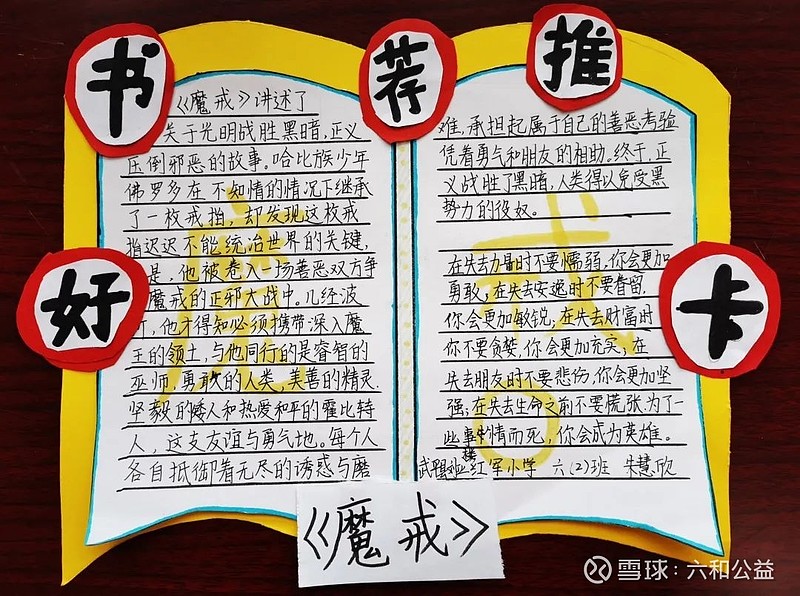 好书推荐卡
《魔戒》讲述了
关于光明战胜黑暗,正义
压倒邪恶的故事。哈比族少年
佛罗多在不知情的情况下继承
了一枚戒指,却发现这枚戒
指迟迟不能统治世界的关键,
是,他被卷入一场善恶双方争
魔戒的正邪大战中。几经波
,他才得知必须携带深入魔
王的领土,与他同行的是睿智的
巫师,勇敢的人类,美善的精灵
坚毅的矮人和热爱和平的霍比特
人,这支友谊与勇气地。每个人
各自抵御着无尽的诱惑与磨
难,承担起属于自己的善恶考验
凭着勇气和朋友的相助。终于,正
义战胜了黑暗,人类得以免受黑
势力的役奴。
在失去力量时不要懦弱,你会更加
勇敢;在失去安逸时不要眷留,
你会更加敏锐;在失去财富时
你不要贪婪,你会更加充实;在
失去朋友时不要悲伤,你会更加坚
强;在失去生命之前不要慌张.为了一
些事情而死,你会成为英雄。
红军小学 六(2)班 朱慧欣
《魔戒》
魔
戒
雪球:六和公益